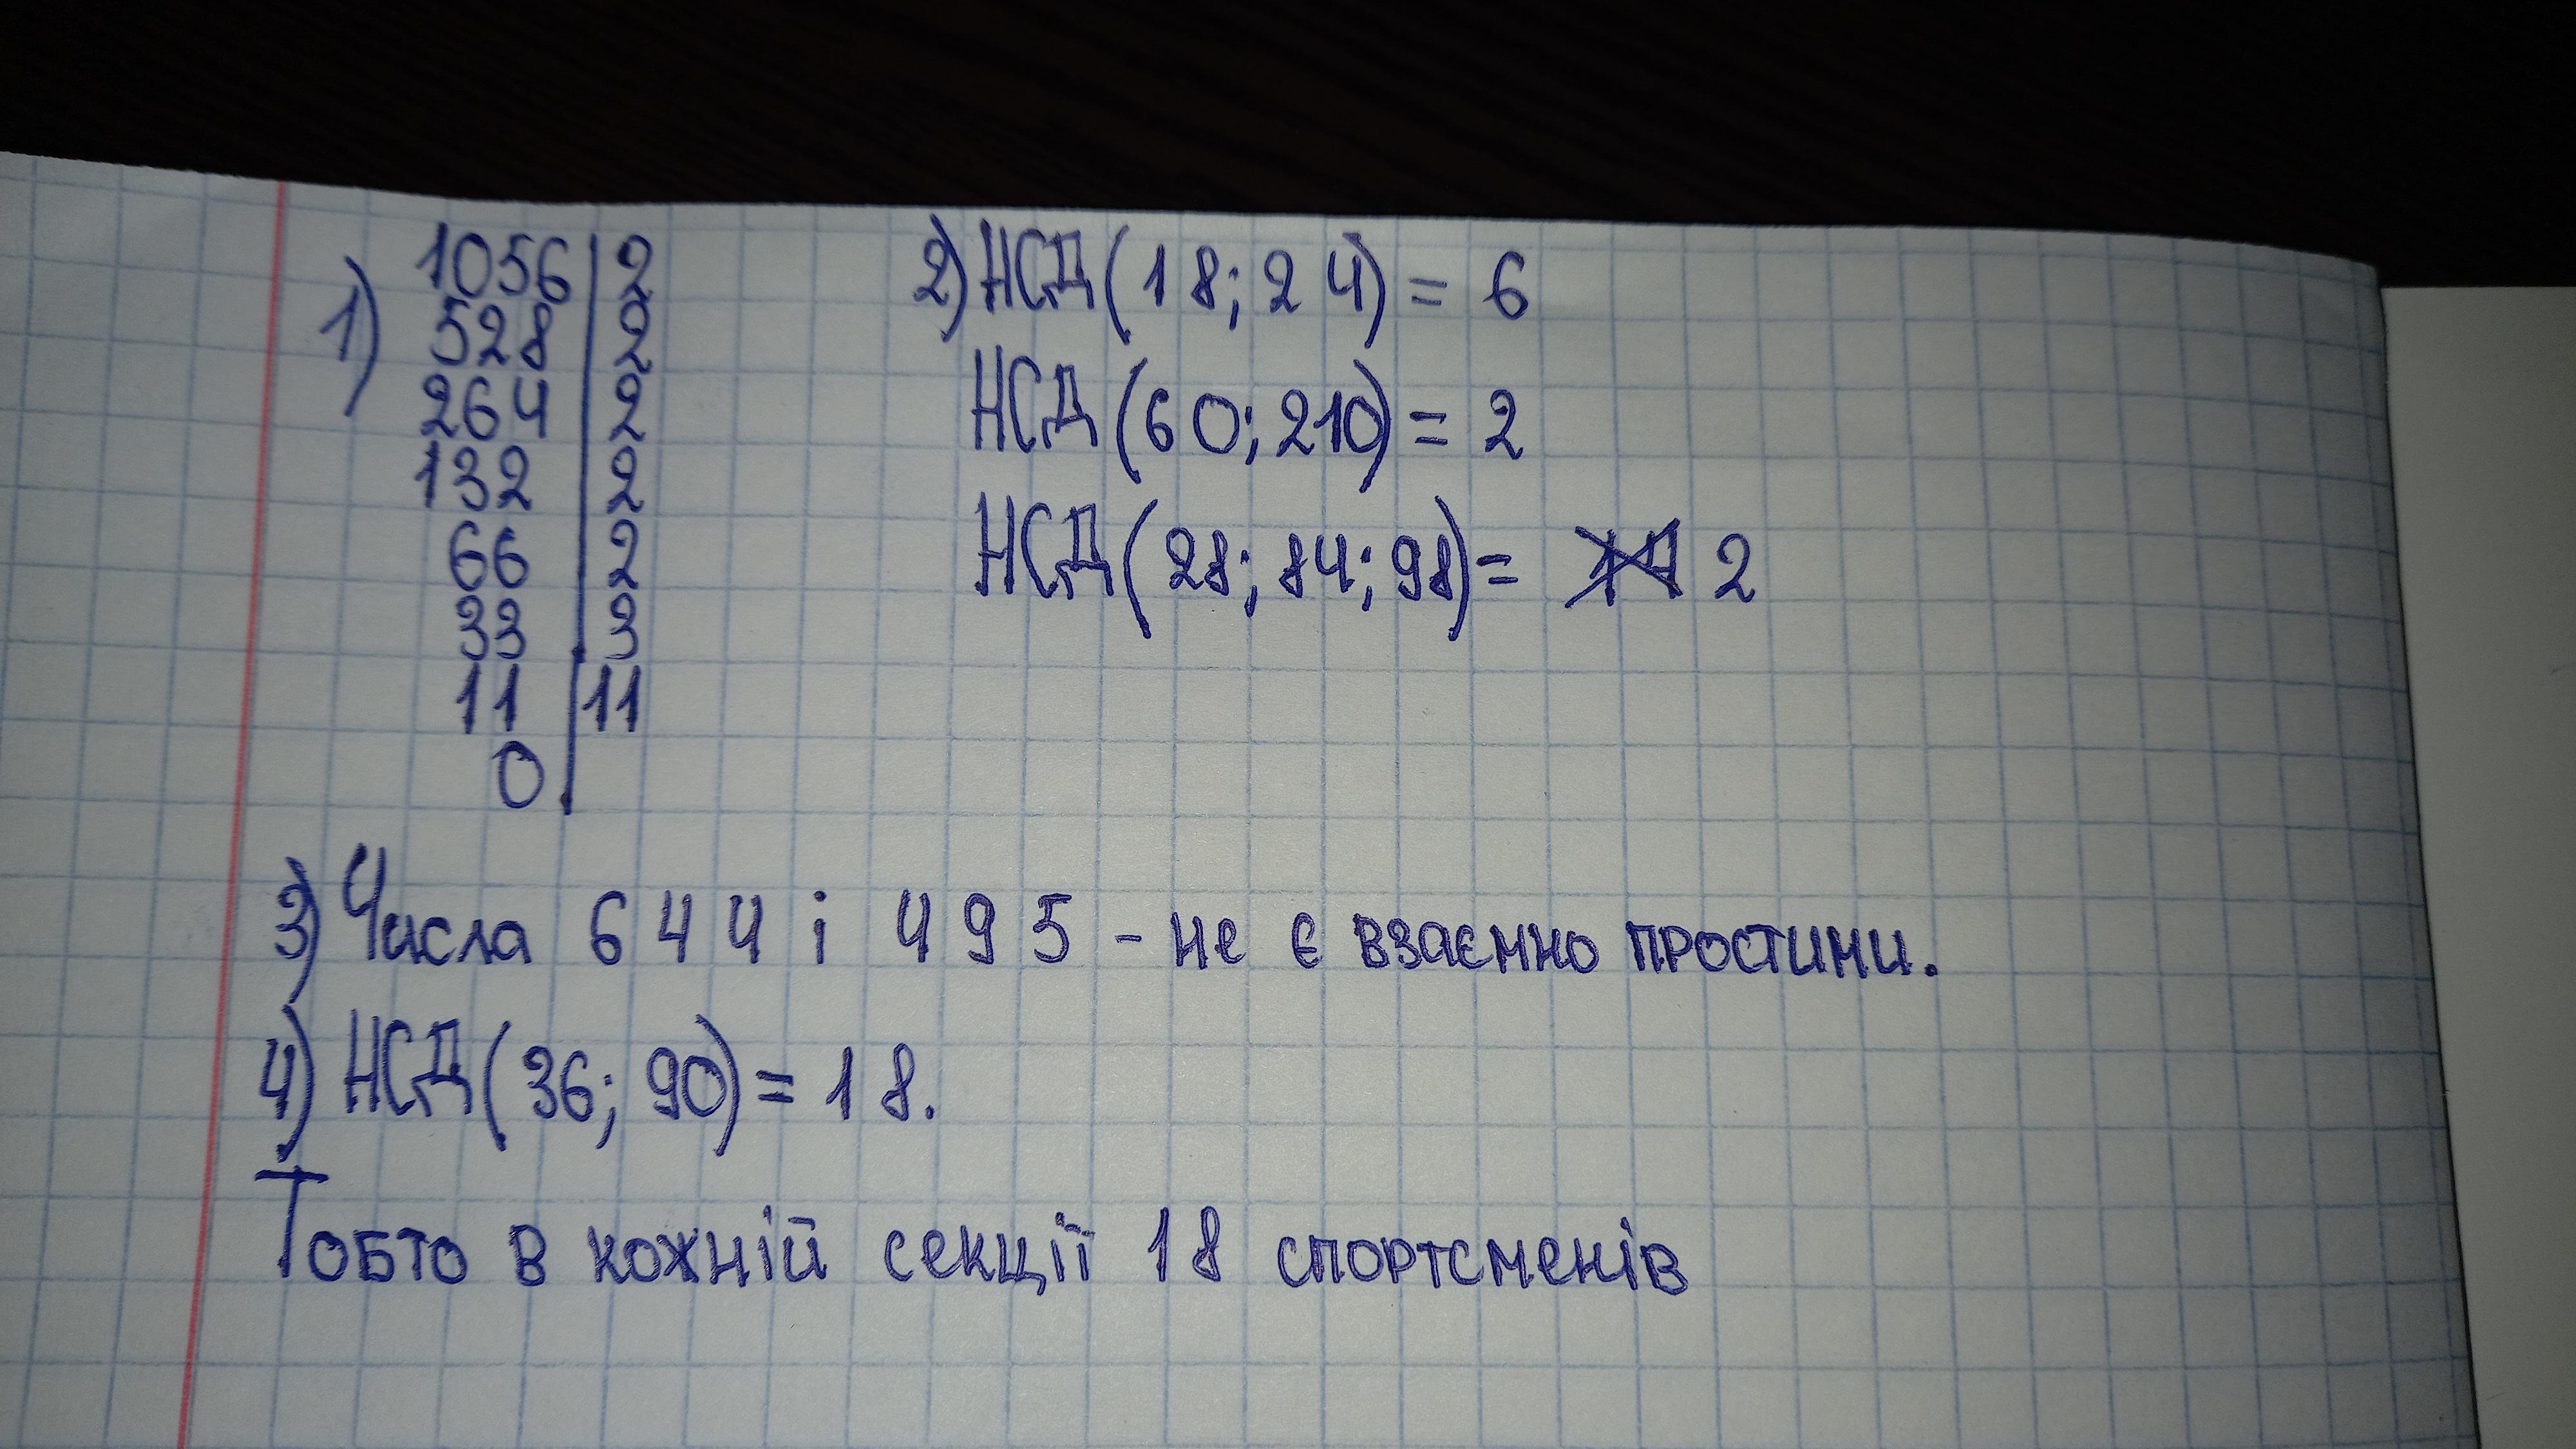 1) 1056 | 2
528 | 2
264 | 2
132 | 2
66 | 2
33 | 3
11 | 11
0
2) НСД (18; 24) = 6
НСД (60; 210) = 2
НСД (28; 84; 98) = 14 2
3) Числа 644 і 495 - не є взаємно простими.
4) НСД (36; 90) = 18.
Тобто в кожній секції 18 спортсменів